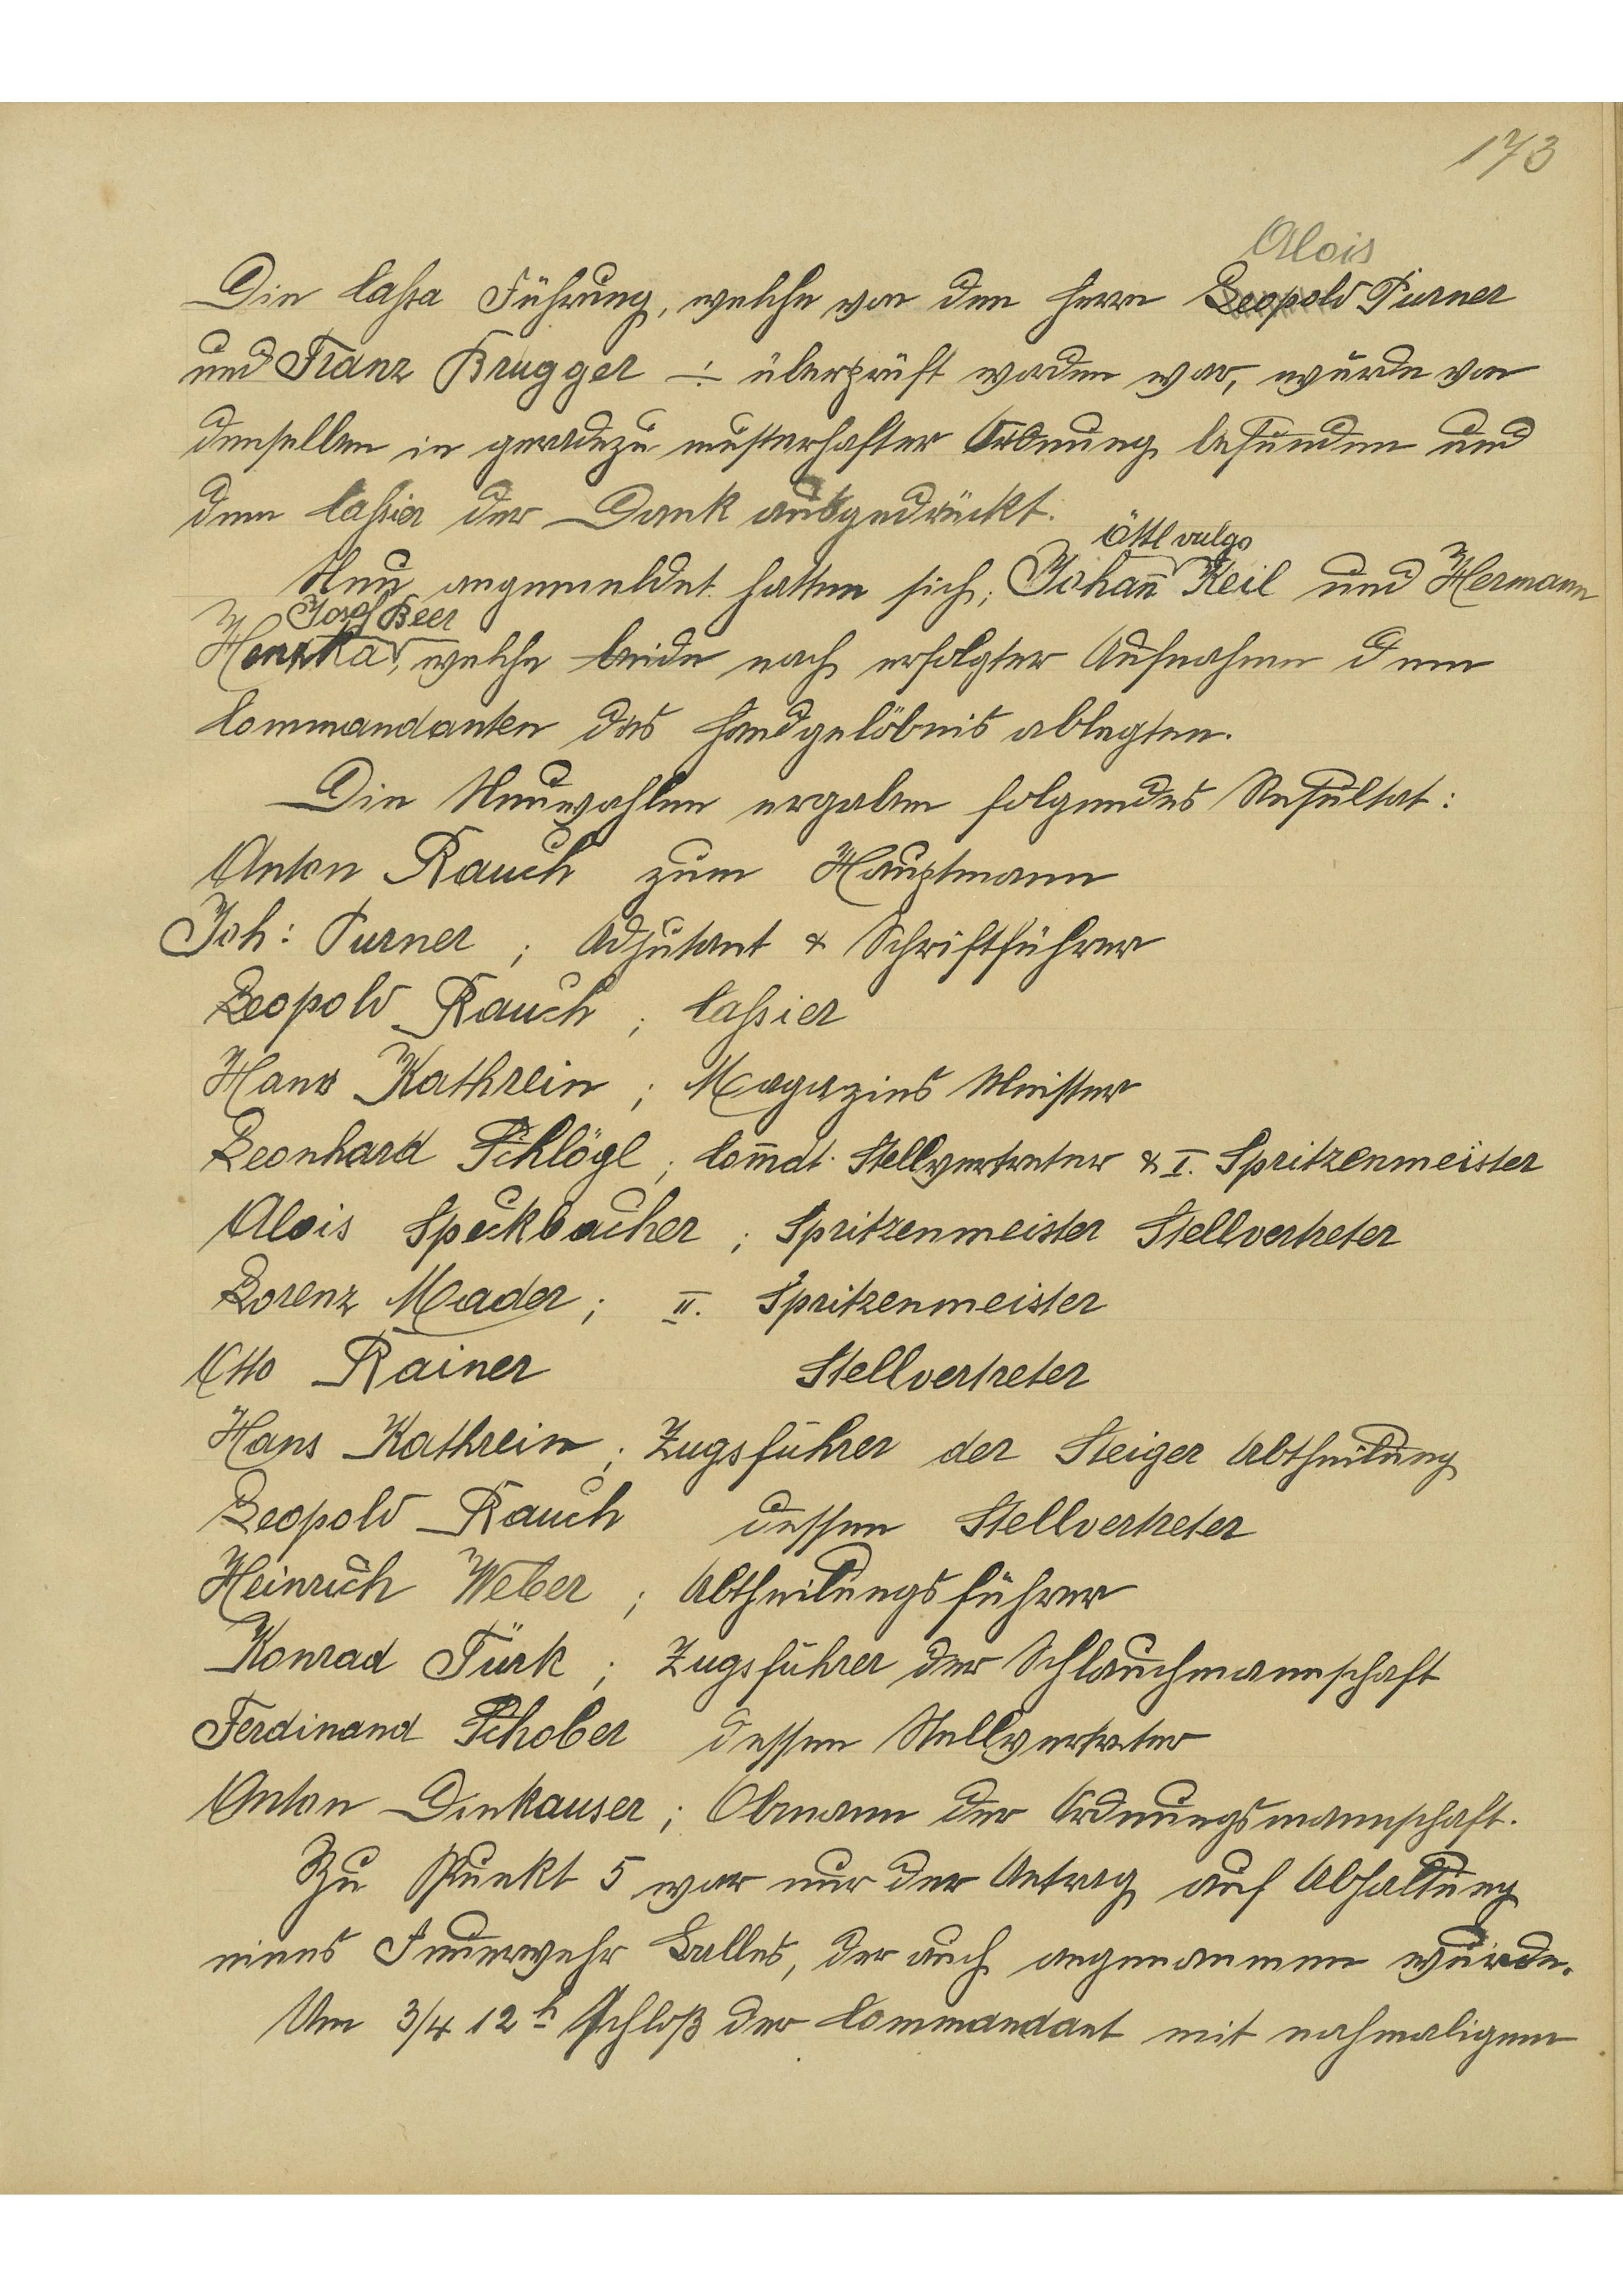 173
Alois
Die Cassa Führung, welche von den Herrn Leopold Purner
und Franz Brugger ÷ überprüft worden war, wurde von
denselben in geradezu musterhafter Ordnung befunden und
dem Cassier der Dank ausgedrückt.
Öttl vulgo
Neu angemeldet hatten sich; Johann̅ Keil und Hermann
Josef Beer
Honzka, welche beide nach erfolgter Aufnahme dem
Commandanten das Handgelöbnis ablegten.
Die Neuwahlen ergaben folgendes Resultat:
Anton Rauch zum Hauptmann
Joh: Purner ; Adjutant & Schriftführer
Leopold Rauch ; Cassier
Hans Kathrein ; Magazins Meister
Leonhard Schlögl ; Com̅dt. Stellvertreter & I. Spritzenmeister
Alois Speckbacher ; Spritzenmeister Stellvertreter
Lorenz Mader ; II. Spritzenmeister
Otto Rainer Stellvertreter
Hans Kathrein ; Zugsführer der Steiger Abtheilung
Leopold Rauch dessen Stellvertreter
Heinrich Weber ; Abtheilungsführer
Konrad Türk ; Zugsführer der Schlauchmannschaft
Ferdinand Schober dessen Stellvertreter
Anton Dinkauser ; Obmann der Ordnungsmannschaft.
Zu Punkt 5 war nur der Antrag auf Abhaltung
eines Feuerwehr Balles, der auch angenommen wurde.
Um 3/4 12 h schloß der Commandant mit nochmaligem